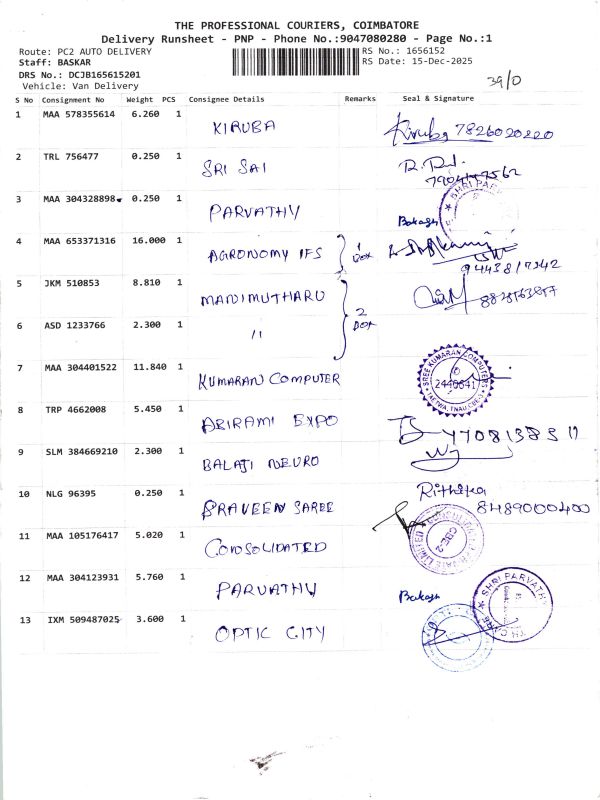 THE PROFESSIONAL COURIERS, COIMBATORE
Delivery Runsheet - PNP - Phone No.:9047080280 - Page No.:1
Route: PC2 AUTO DELIVERY
RS No.: 1656152
Staff: BASKAR
RS Date: 15-Dec-2025
DRS No.: DCJB165615201
Vehicle: Van Delivery
39/0
S No Consignment No Weight PCS Consignee Details Remarks Seal & Signature
1 MAA 578355614 6.260 1 KIRUBA Kiruba 7826020220
2 TRL 756477 0.250 1 SRI SAI
3 MAA 304328898 0.250 1 PARVATHY Bakash SHRI PARVA
4 MAA 653371316 16.000 1 AGRONOMY IFS 1 BOX
5 JKM 510853 8.810 1 MANIMUTHARU 2 BOX
6 ASD 1233766 2.300 1 11
7 MAA 304401522 11.840 1 KUMARAN COMPUTER SREE KUMARAN COMPUTERS 2440641
8 TRP 4662008 5.450 1 ABIRAMI EXPO
9 SLM 384669210 2.300 1 BALAJI NEURO
10 NLG 96395 0.250 1 PRAVEEN SAREE 8489000400
11 MAA 105176417 5.020 1 CONSOLIDATED PRIVATE LIMITED CBE-2
12 MAA 304123931 5.760 1 PARVATHY Bakash SHRI PARVATHI
13 IXM 509487025 3.600 1 OPTIC CITY